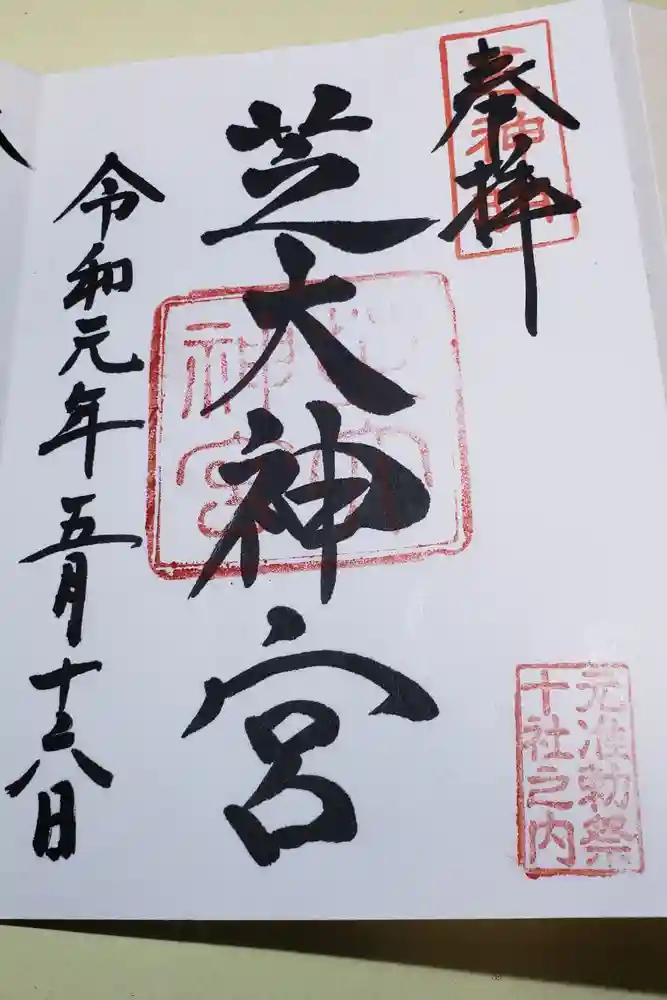 奉拝
芝大神宮
神宮
元准勅祭
十社之内
令和元年五月十六日